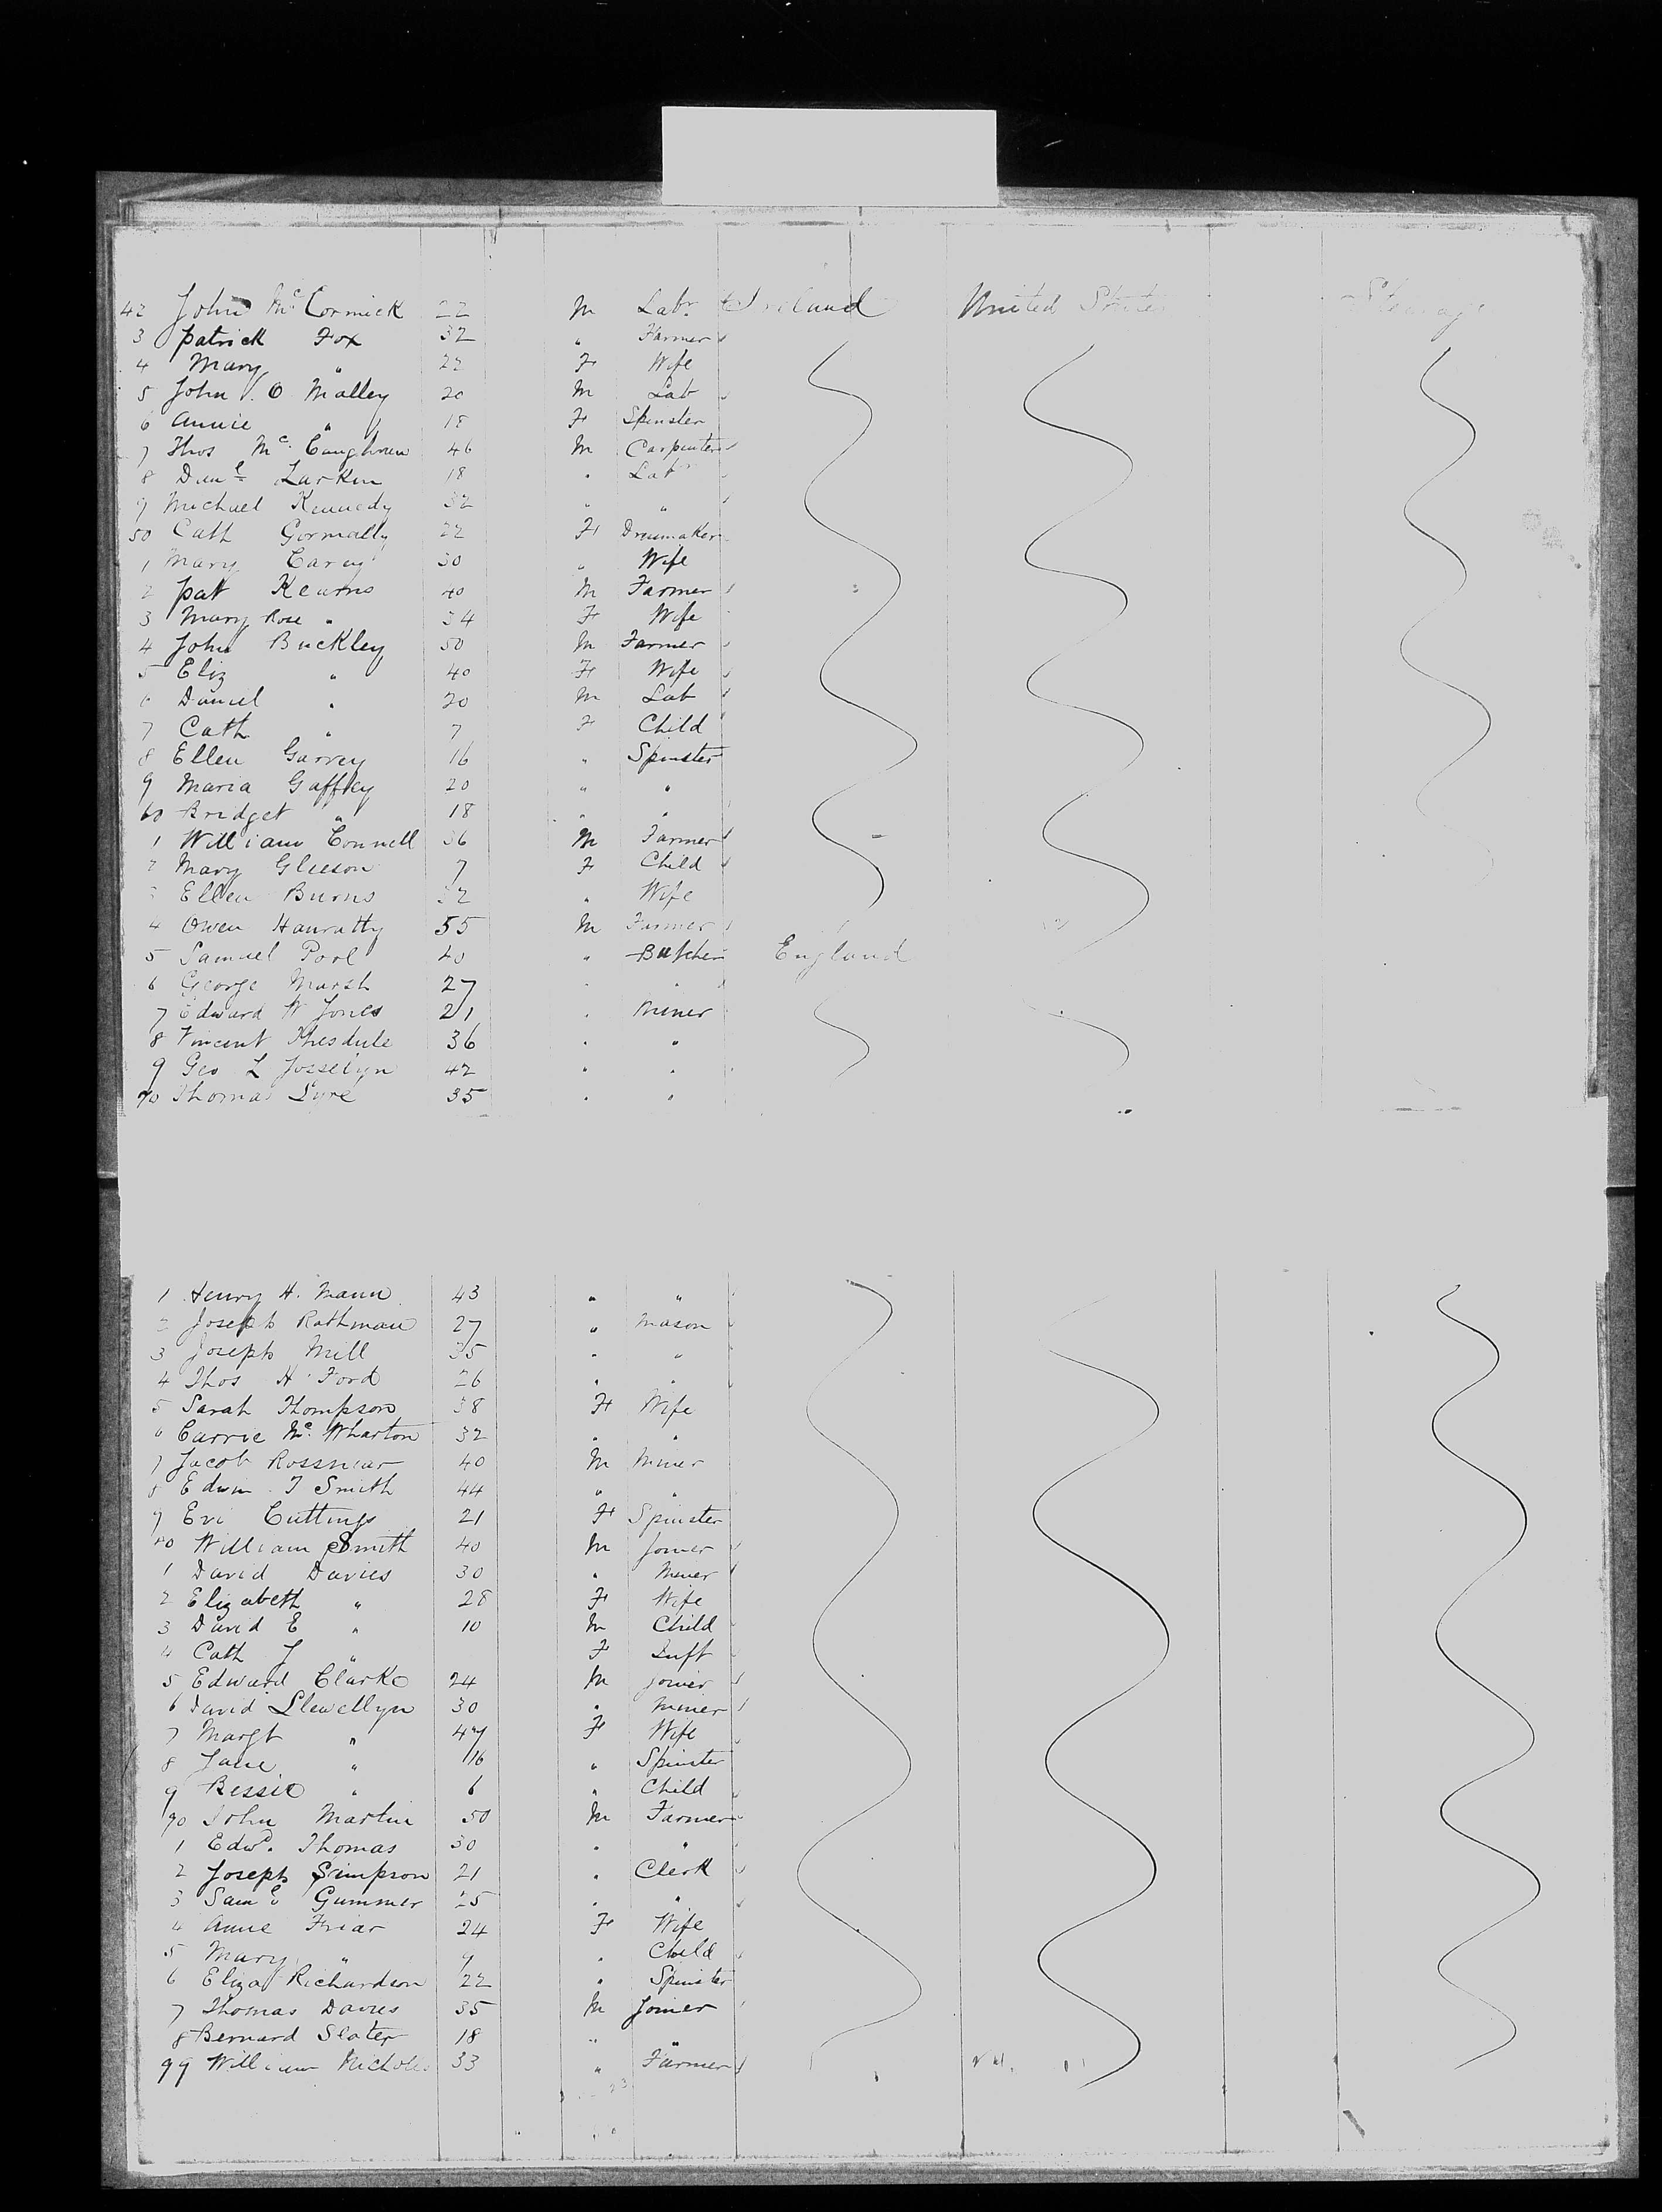 42 John McCormick 22 M Labr Ireland United States Steerage
3 Patrick Fox 32 " Farmer
4 Mary " 22 F Wife
5 John O Malley 20 M Lab
6 Annie " 18 F Spinster
7 Thos Mc 46 M Carpenter
8 Danl Larkin 18 " Labr
9 Michael Kennedy 32 " "
50 Cath Gormally 22 F Dressmaker
1 Mary Carey 30 " Wife
2 Pat Kearns 40 M Farmer
3 Mary Rose " 34 F Wife
4 John Buckley 50 M Farmer
5 Eliz " 40 F Wife
6 Daniel " 20 M Lab
7 Cath " 7 F Child
8 Ellen Garvey 16 " Spinster
9 Maria Gaffky 20 " "
60 Bridget " 18 " "
1 William Connell 36 M Farmer
2 Mary Gleeson 7 F Child
3 Ellen Burns 32 " Wife
4 Owen Hanratty 55 M Farmer
5 Samuel Pool 40 " Butcher England
6 George Marsh 27 " "
7 Edward W Jones 21 " Miner
8 Vincent 36 " "
9 Geo L Josselyn 42 " "
70 Thomas Lyre 35 " "
1 Henry H. Mann 43 " "
2 Joseph Rothman 27 " Mason
3 Joseph Mill 35 " "
4 Thos H Ford 26 " "
5 Sarah Thompson 38 F Wife
6 Carrie Mc Wharton 32 " "
7 Jacob 40 M Miner
8 Edwin T Smith 44 " "
9 Evi Cuttings 21 F Spinster
80 William Smith 40 M Joiner
1 David Davies 30 " Miner
2 Elizabeth " 28 F Wife
3 David E " 10 M Child
4 Cath J " F Inft
5 Edward Clarke 24 M Joiner
6 David Llewellyn 30 " Miner
7 Margt " 47 F Wife
8 Jane " 16 " Spinster
9 Bessie " 6 " Child
90 John Martin 50 M Farmer
1 Edwd. Thomas 30 " "
2 Joseph Simpson 21 " Clerk
3 Saml Gummer 25 " "
4 Anne Friar 24 F Wife
5 Mary " 9 " Child
6 Eliza Richardson 22 " Spinster
7 Thomas Davies 35 M Joiner
8 Bernard Slater 18 " "
99 William Nicholls 33 " Farmer